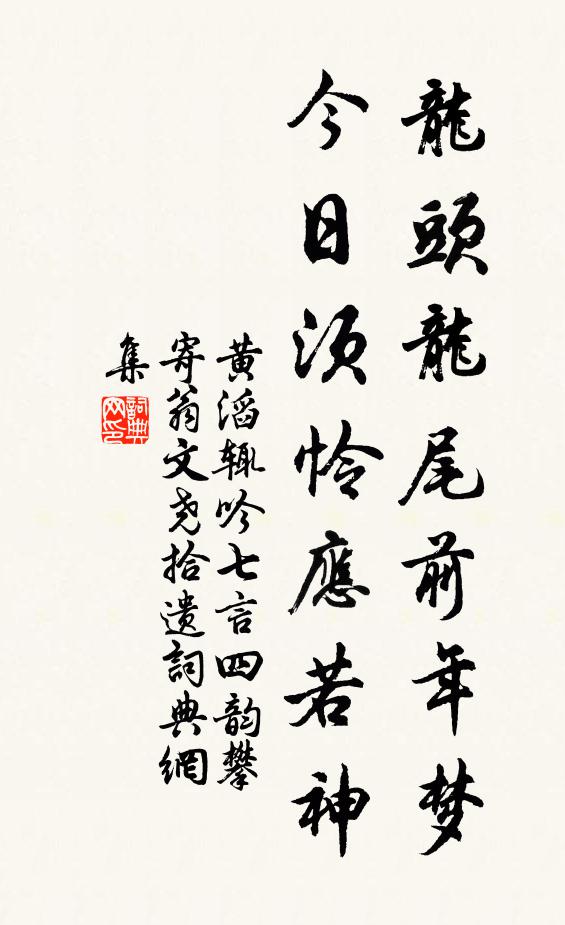 龍頭龍尾前年梦
今日須怜應若神
黄滔辄吟七言四韵攀
寄翁文尧拾遺詞典網
集
詞典網印